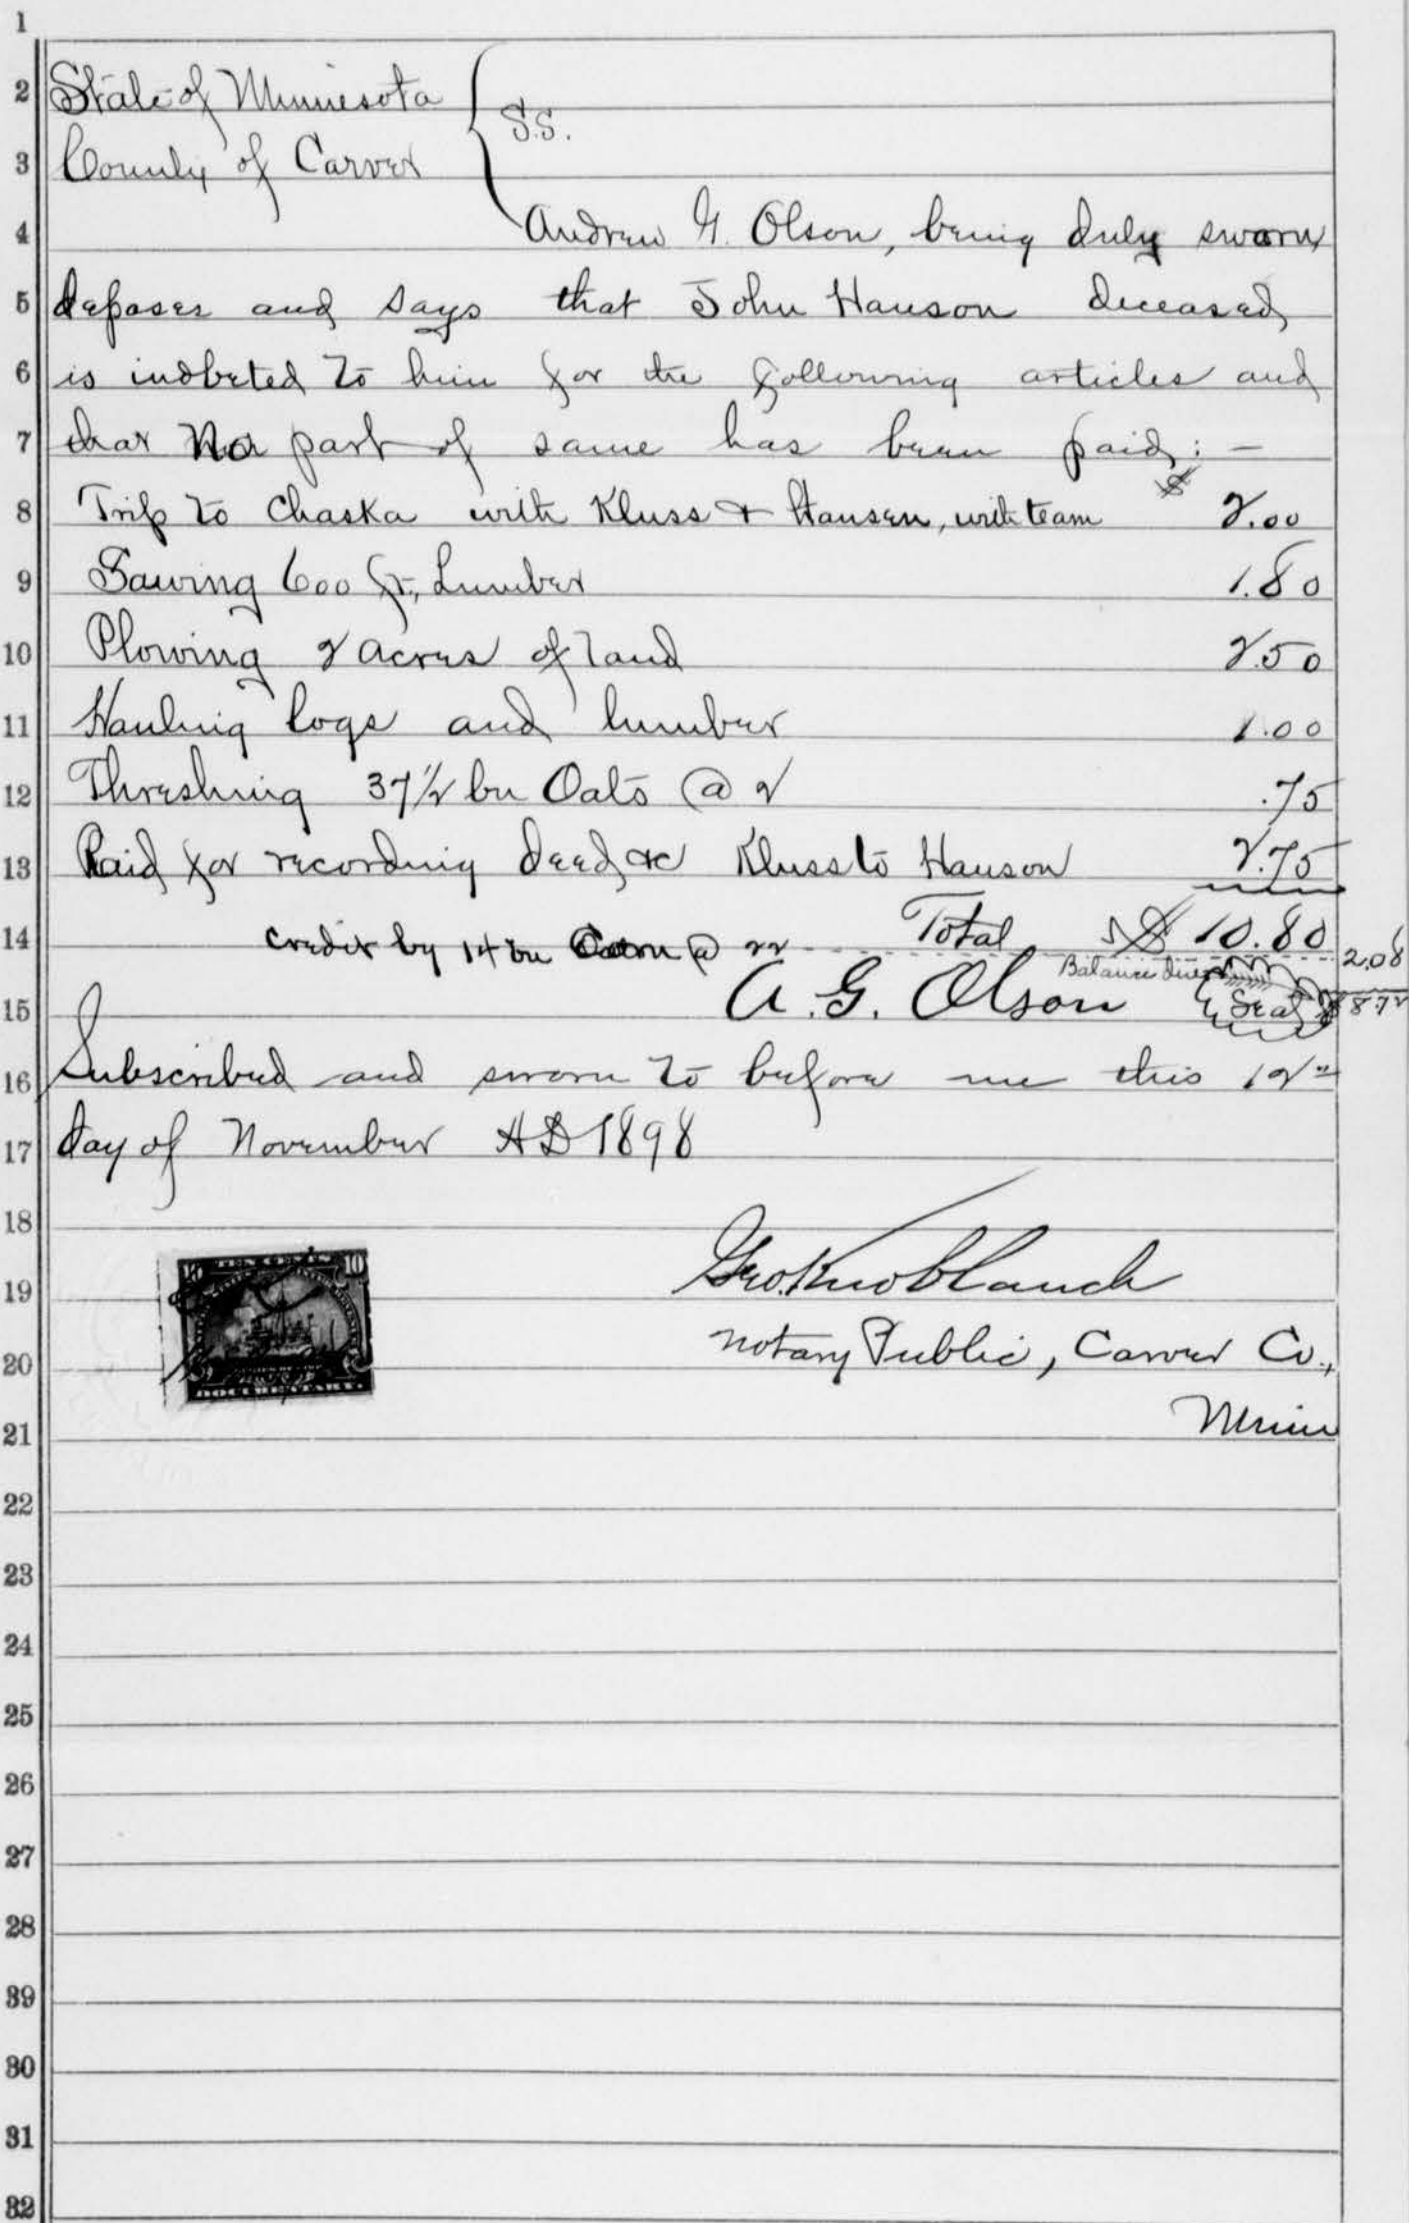 1
2 State of Minnesota
S.S.
3 County of Carver
4 Andrew G. Olson, being duly sworn
5 deposes and says that John Hanson deceased,
6 is indbeted to him for the following articles and
7 that no part of same has been paid: —
8 Trip to Chaska with Kluss & Hansen, with team $ 2.00
9 Sawing 600 ft, Lumber 1.80
10 Plowing 2 acres of land 2.50
11 Hauling logs and lumber 1.00
12 Threshing 37 1/2 bu Oats @ 2 .75
13 Paid for recording deed &c Kluss to Hanson 2.75
14 Total $ 10.80
credit by 14 bu Corn @ 22 2.08
Balance due $ 8.72
15 A. G. Olson Seal
16 Subscribed and sworn to before me this 12"
17 day of November AD 1898
18
19 Geo. Knoblauch
20 Notary Public, Carver Co.,
21 Minn
TEN CENTS
10 10
DOCUMENTARY
22
23
24
25
26
27
28
39
30
31
32